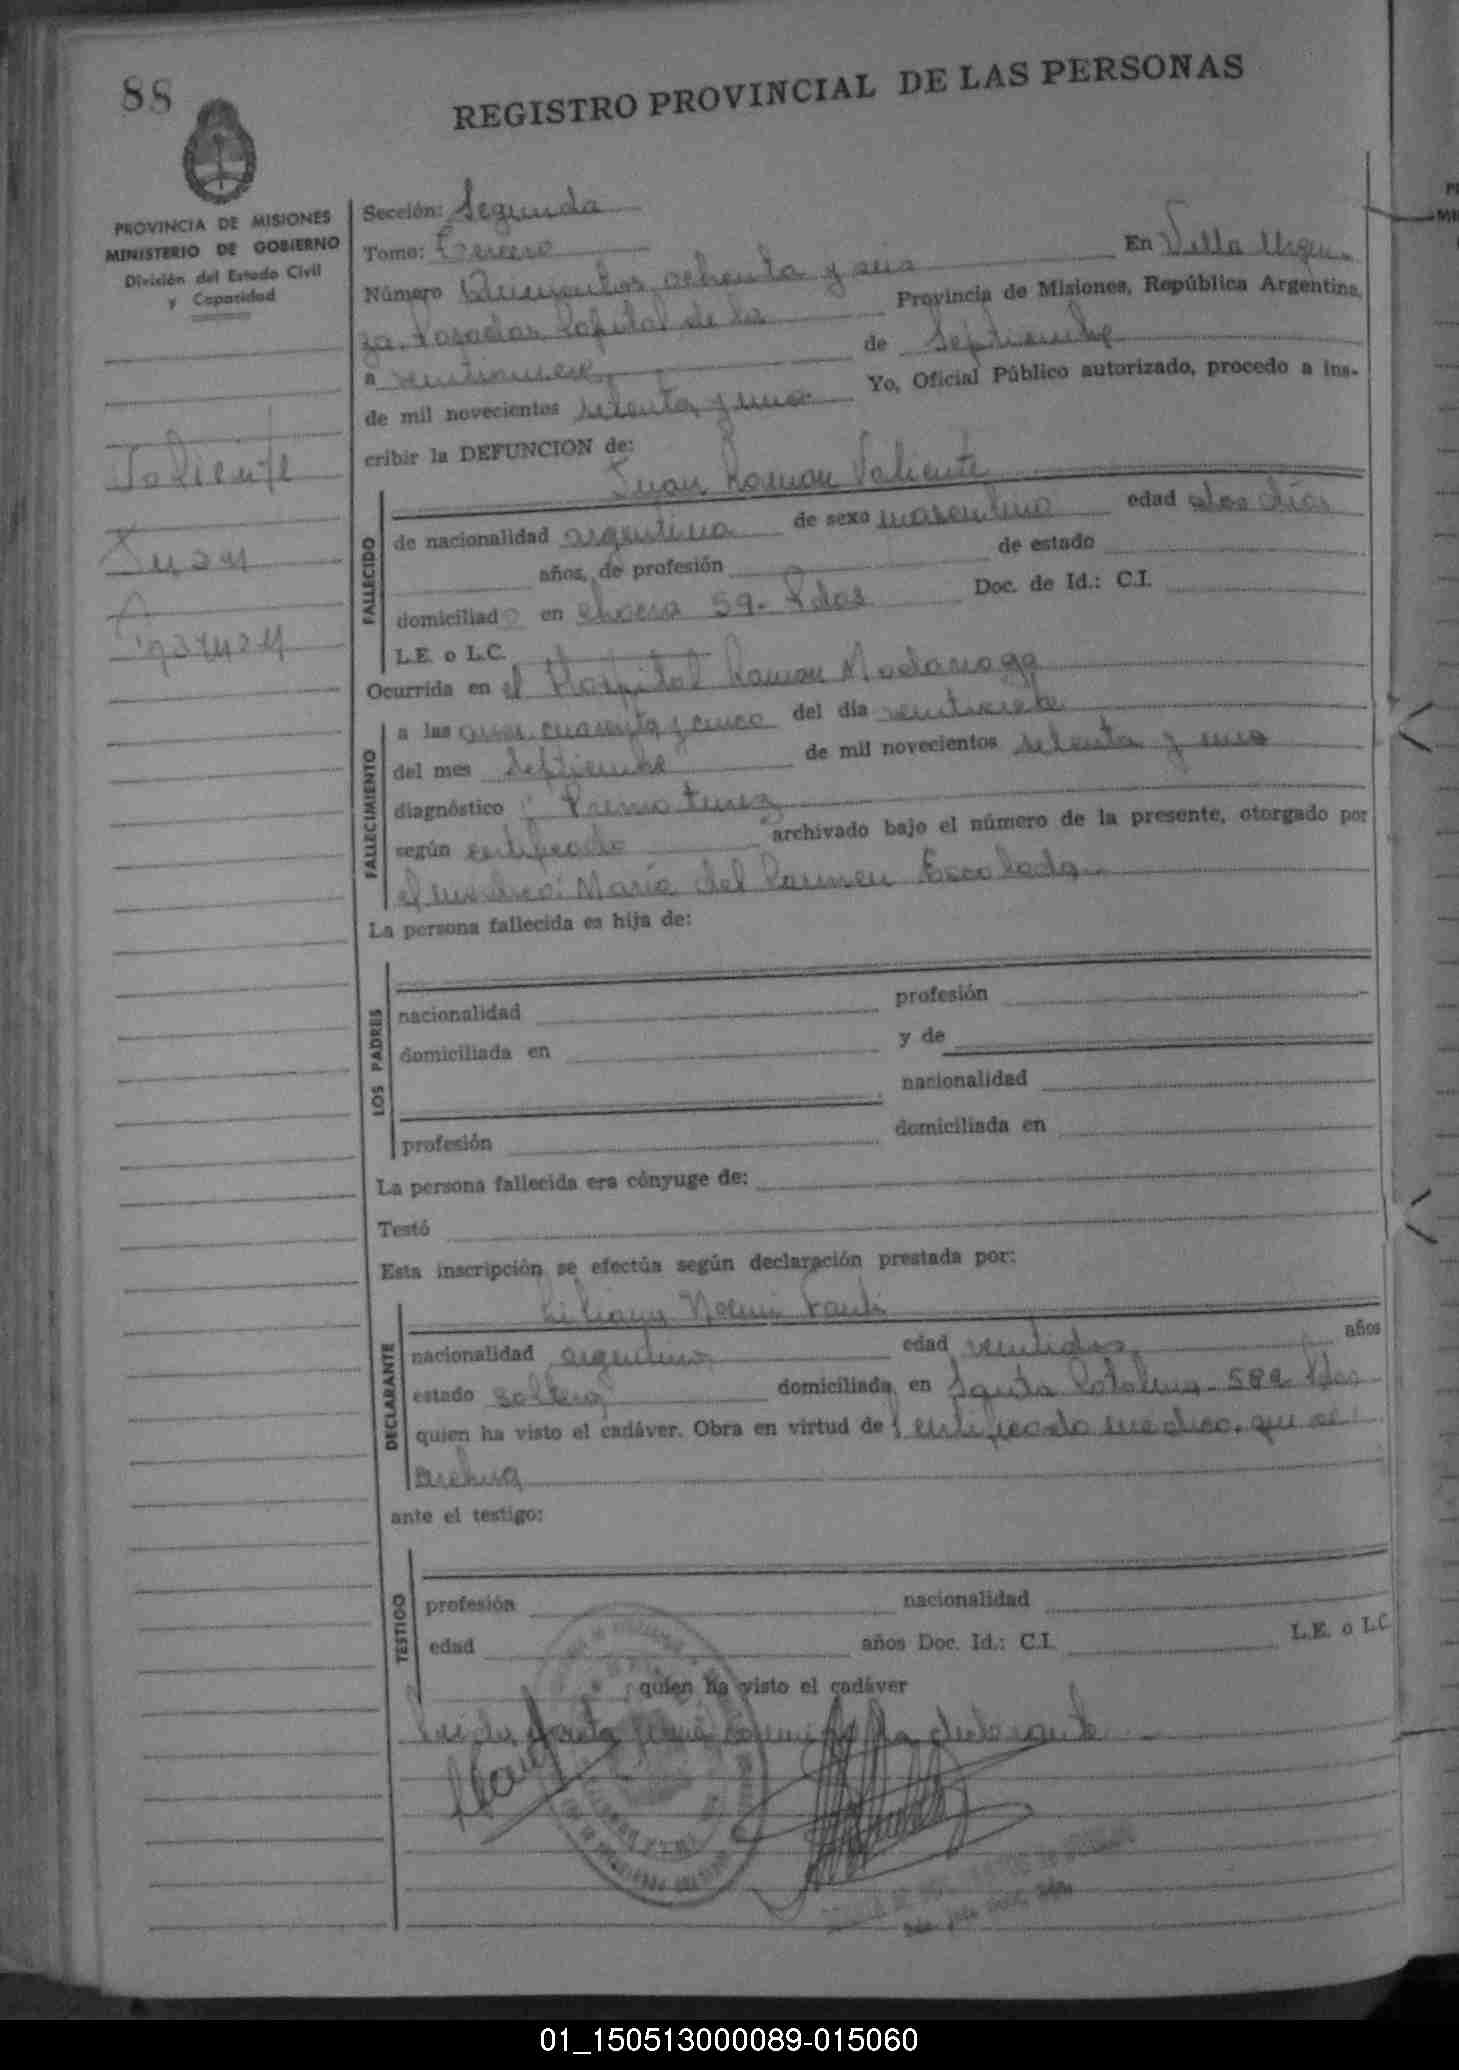 88
REGISTRO PROVINCIAL DE LAS PERSONAS
PROVINCIA DE MISIONES
MINISTERIO DE GOBIERNO
División del Estado Civil
y Capacidad
Valiente
Juan
Ramon
Sección: Segunda
Tomo: Tercero
Número Quinientos ochenta y seis En Villa Urqui
za, Posadas, Capital de la Provincia de Misiones, República Argentina,
a de Septiembre
de mil novecientos setenta y uno. Yo, Oficial Público autorizado, procedo a ins-
cribir la DEFUNCION de:
Juan Ramon Valiente
FALLECIDO
de nacionalidad argentina de sexo masculino edad dos días
años, de profesión de estado
domiciliado en chacra 59. Pdas Doc. de Id.: C.I.
L.E. o L.C.
Ocurrida en el Hospital Ramon Madariaga
FALLECIMIENTO
a las cuarenta y cinco del día veintisiete
del mes Septiembre de mil novecientos setenta y uno
diagnóstico: Prematurez
según certificado archivado bajo el número de la presente, otorgado por
el médico: María del Carmen Escalada
La persona fallecida es hija de:
LOS PADRES
nacionalidad profesión
domiciliada en y de
nacionalidad
profesión domiciliada en
La persona fallecida era cónyuge de:
Testó
Esta inscripción se efectúa según declaración prestada por:
Liliana Noemi
DECLARANTE
nacionalidad argentina edad veintidos años
estado soltera domiciliada en Santa Catalina 589 Pdas
quien ha visto el cadáver. Obra en virtud del certificado médico, que se
archiva
ante el testigo:
TESTIGO
profesión nacionalidad
edad años Doc. Id.: C.I. L.E. o L.C.
quien ha visto el cadáver
Leida el acta firma conmigo la declarante
01_150513000089-015060